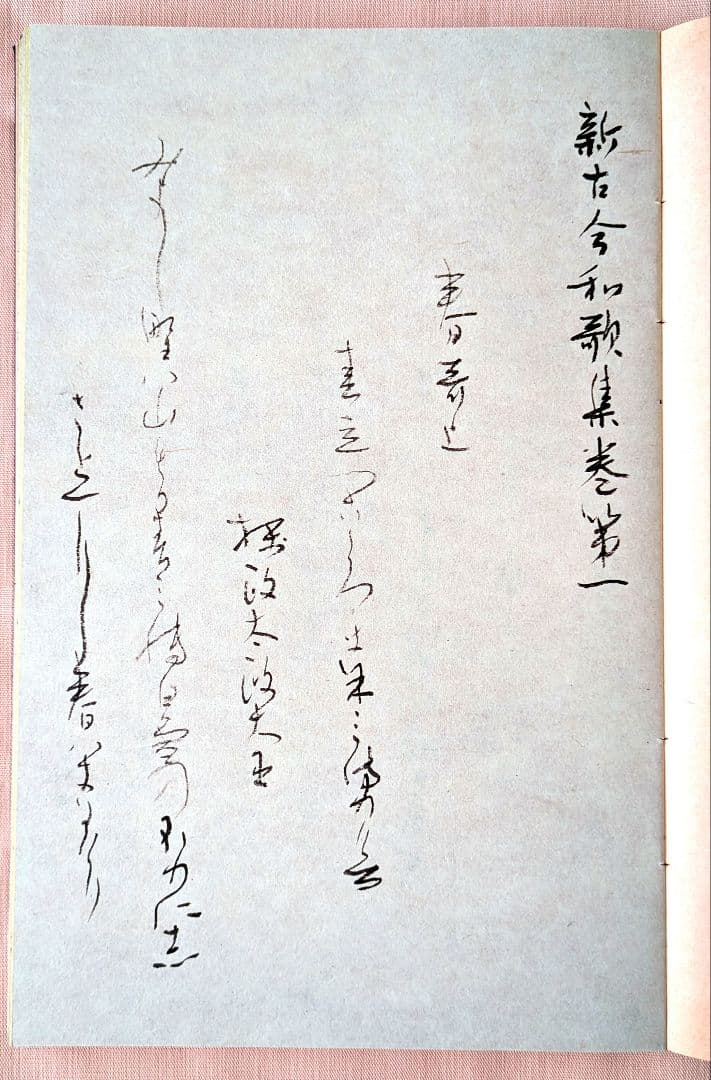 新古今和歌集巻第一
春哥上
春立つこゝろをよみ侍りける
摂政太政大臣
みよし野ハ山もかすミて白雪のふりにし
さとに春ハきにけり